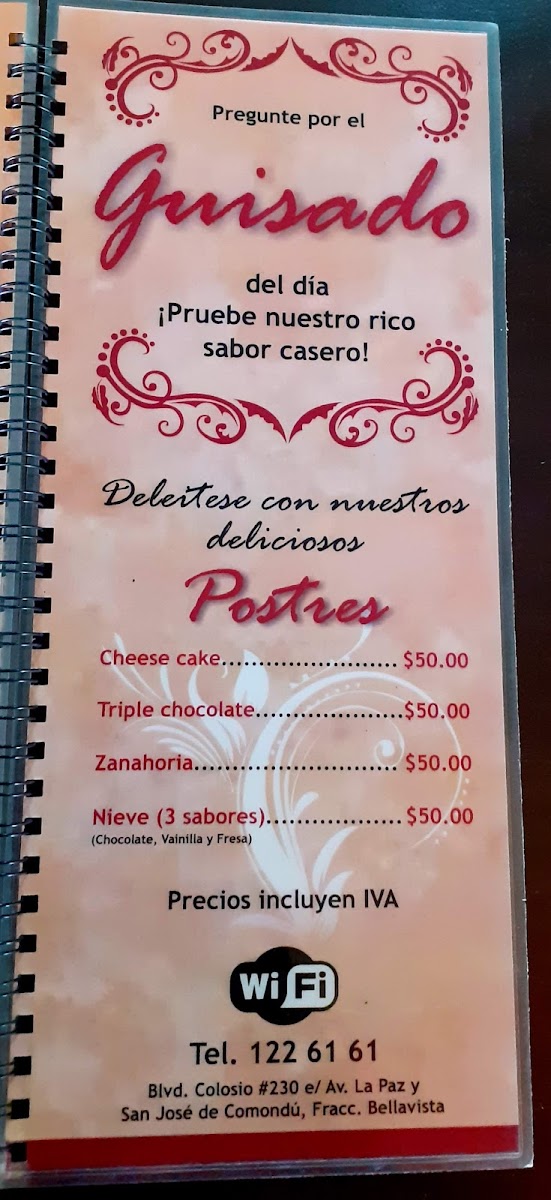 Pregunte por el
Guisado
del día
¡Pruebe nuestro rico
sabor casero!
Deleitese con nuestros
deliciosos
Postres
Cheese cake........................ $50.00
Triple chocolate....................$50.00
Zanahoria............................ $50.00
Nieve (3 sabores).................. $50.00
(Chocolate, Vainilla y Fresa)
Precios incluyen IVA
Wi Fi
Tel. 122 61 61
Blvd. Colosio #230 e/ Av. La Paz y
San José de Comondú, Fracc. Bellavista